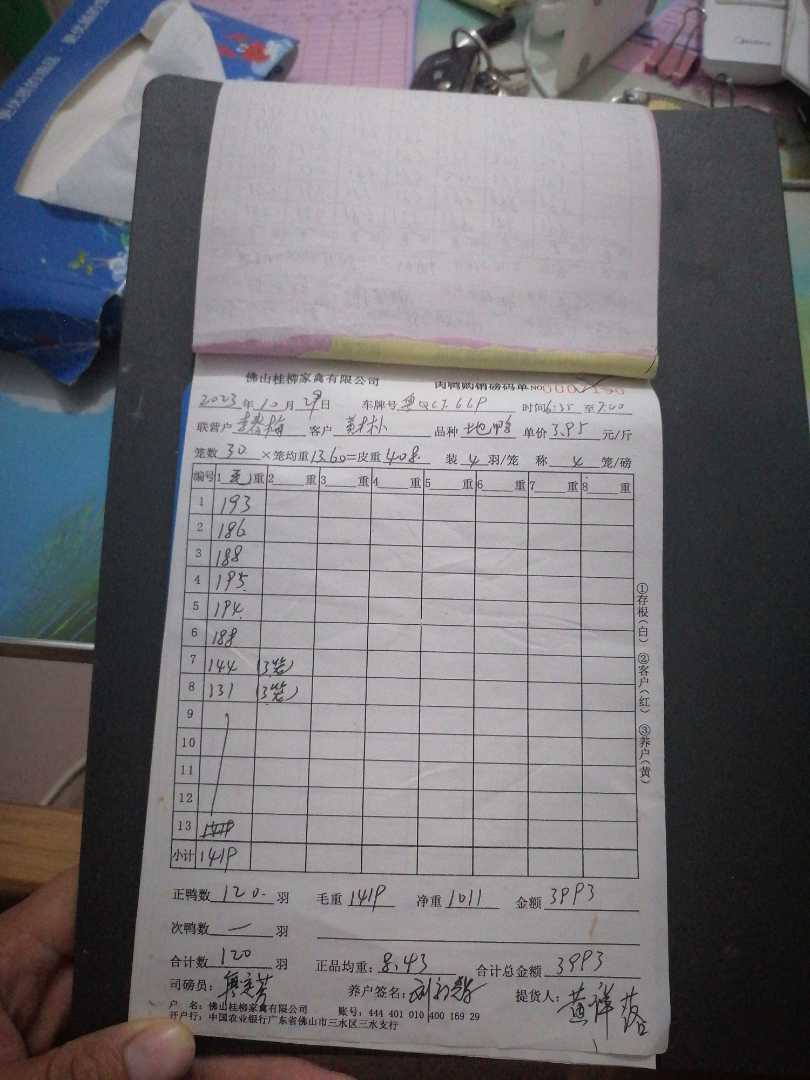 佛山桂柳家禽有限公司 肉鸭购销磅码单 NO0007190
2023年10月29日 车牌号 时间6:35至7:20
联营户 客户 品种 地鸭 单价3.95元/斤
笼数30×笼均重13.60=皮重408. 装4羽/笼 称4笼/磅
编号 1 毛重 2 重 3 重 4 重 5 重 6 重 7 重 8 重
1 193
2 186
3 188
4 195
5 194
6 188
7 144 (3笼)
8 131 (3笼)
9
10
11
12
13
小计 1419
正鸭数120羽 毛重1419 净重1011 金额3993
次鸭数一羽
合计数120羽 正品均重:8.43 合计总金额3993
司磅员: 养户签名: 提货人:
户 名:佛山桂柳家禽有限公司 账号:444 401 010 400 169 29
开户行:中国农业银行广东省佛山市三水区三水支行
①存根(白) ②客户(红) ③养户(黄)
Midea